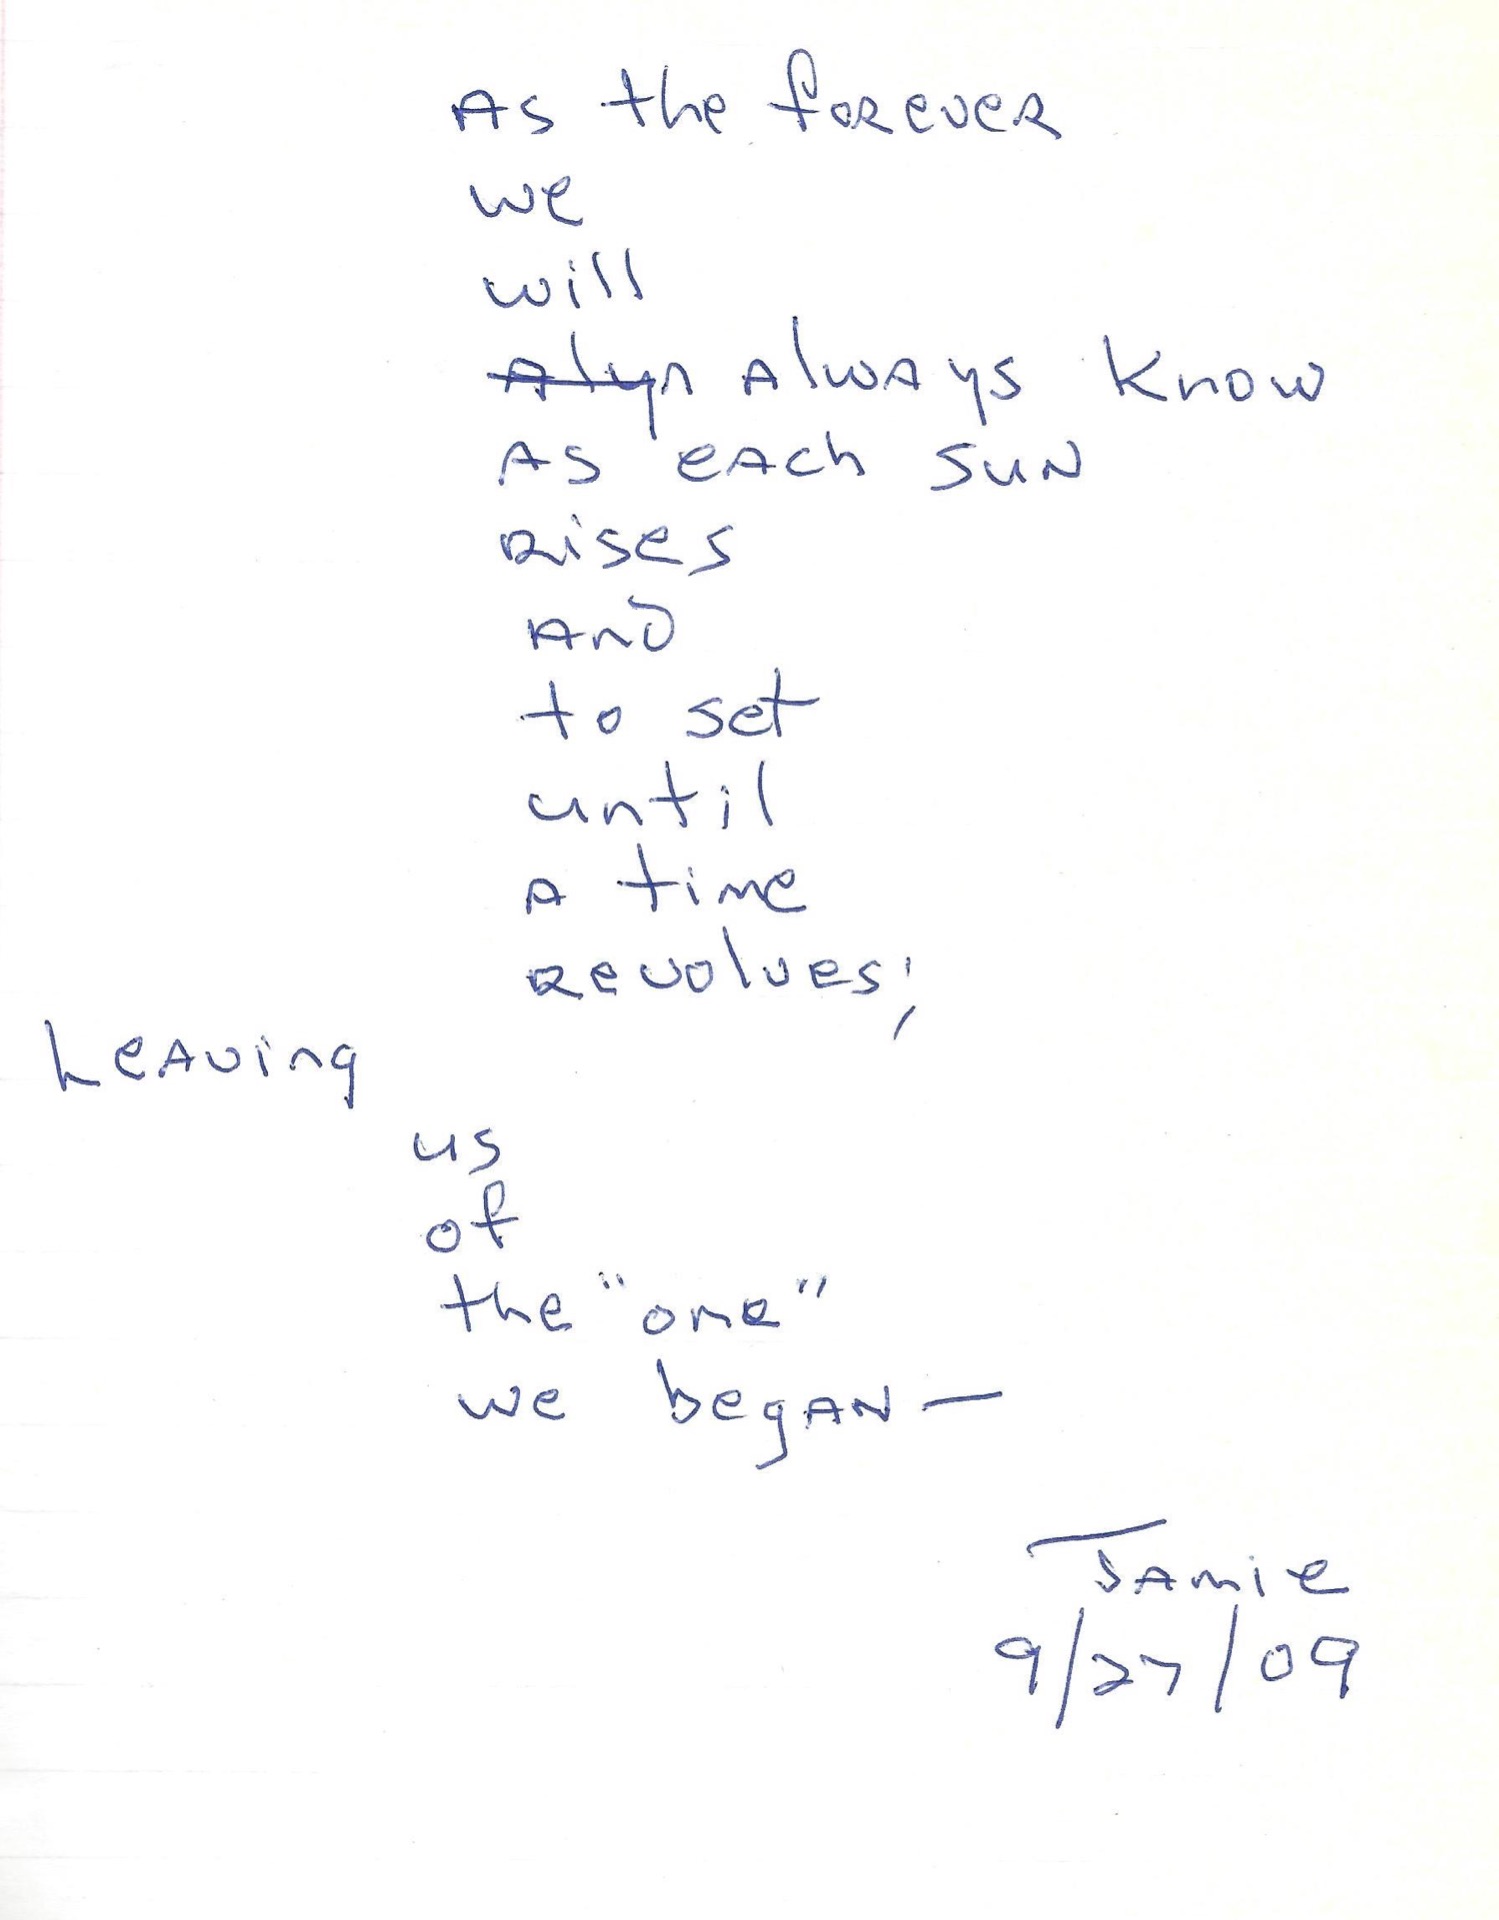 As the forever
we
will
always know
as each sun
rises
and
to set
until
a time
revolves;
Leaving
us
of
the "one"
we began—
Jamie
9/27/09